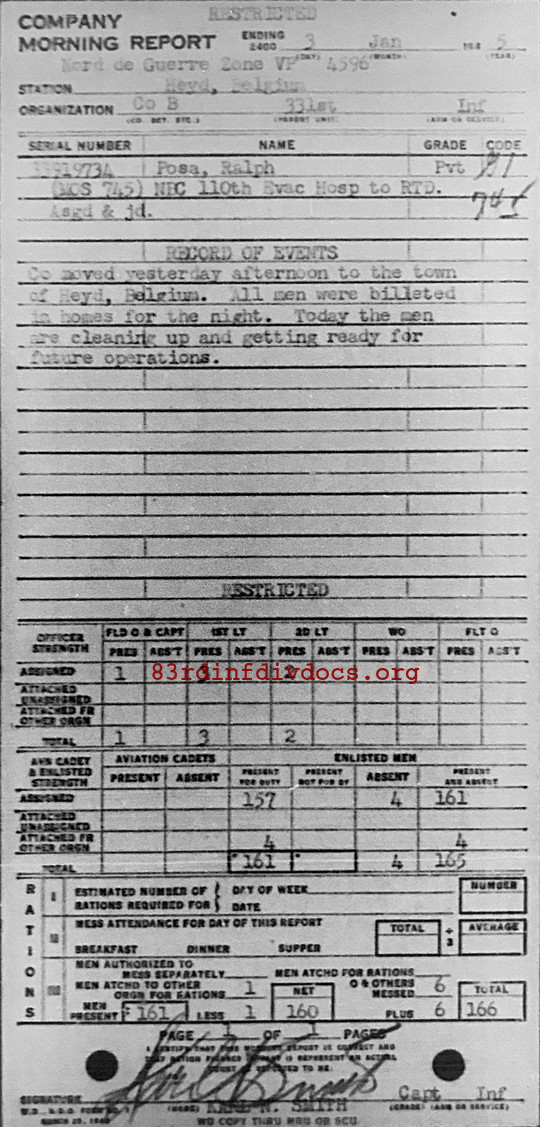 RESTRICTED
COMPANY
MORNING REPORT ENDING 2400 3 Jan 194 5
(DAY) (MONTH) (YEAR)
Nord de Guerre Zone VP 4596
STATION Heyd, Belgium
ORGANIZATION Co B 331st Inf
(CO. DET. ETC.) (PARENT UNIT) (ARM OR SERVICE)
SERIAL NUMBER NAME GRADE CODE
Posa, Ralph Pvt
(MOS 745) NEC 110th Evac Hosp to RTD.
Asgd & jd. 745
RECORD OF EVENTS
Co moved yesterday afternoon to the town
of Heyd, Belgium. All men were billeted
in homes for the night. Today the men
are cleaning up and getting ready for
future operations.
RESTRICTED
OFFICER STRENGTH FLD O & CAPT 1ST LT 2D LT WO FLT O
PRES ABS'T PRES ABS'T PRES ABS'T PRES ABS'T PRES ABS'T
ASSIGNED 1 3 2
83rdinfdivdocs.org
ATTACHED UNASSIGNED
ATTACHED FR OTHER ORGN
TOTAL 1 3 2
AVN CADET & ENLISTED STRENGTH AVIATION CADETS ENLISTED MEN
PRESENT ABSENT PRESENT FOR DUTY PRESENT NOT FOR DY ABSENT PRESENT AND ABSENT
ASSIGNED 157 4 161
ATTACHED UNASSIGNED
ATTACHED FR OTHER ORGN 4 4
TOTAL 161 4 165
RATIONS
ESTIMATED NUMBER OF RATIONS REQUIRED FOR DAY OF WEEK DATE NUMBER
MESS ATTENDANCE FOR DAY OF THIS REPORT TOTAL ÷ 3 AVERAGE
BREAKFAST DINNER SUPPER
MEN AUTHORIZED TO MESS SEPARATELY MEN ATCHD FOR RATIONS
MEN ATCHD TO OTHER ORGN FOR RATIONS 1 NET O & OTHERS MESSED 6 TOTAL
MEN PRESENT 161 LESS 1 160 PLUS 6 166
PAGE 1 OF 1 PAGES
I CERTIFY THAT THIS MORNING REPORT IS CORRECT AND
SIGNATURE Capt Inf
(NAME) KARL N. SMITH (GRADE) (ARM OR SERVICE)